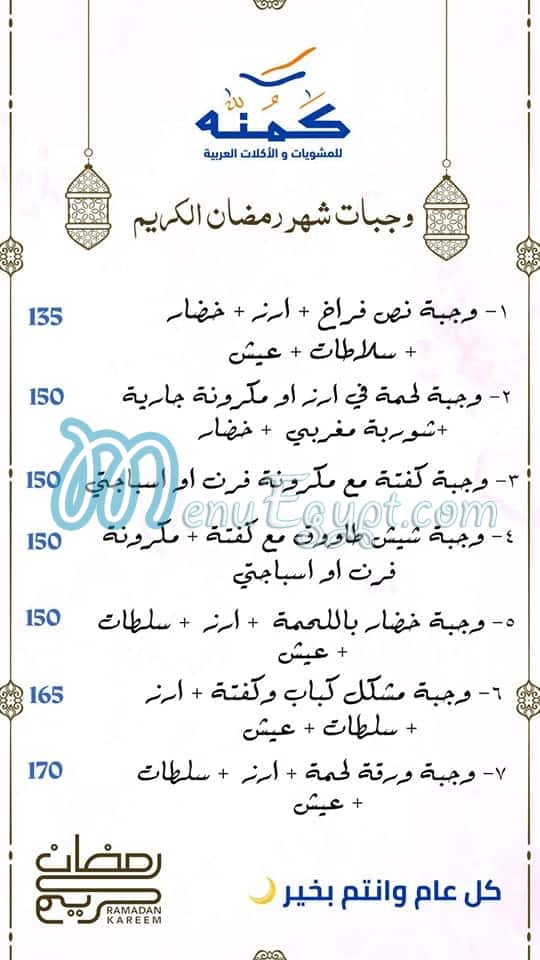 كمنه
للمشويات و الأكلات العربية
وجبات شهر رمضان الكريم
١- وجبة نص فراخ + ارز + خضار 135
+ سلاطات + عيش
٢- وجبة لحمة في ارز او مكرونة جارية 150
+شوربة مغربي + خضار
٣- وجبة كفتة مع مكرونة فرن او اسباجتي 150
MenuEgypt.com
٤- وجبة شيش طاووق مع كفتة + مكرونة 150
فرن او اسباجتي
٥- وجبة خضار باللحمة + ارز + سلطات 150
+ عيش
٦- وجبة مشكل كباب وكفتة + ارز 165
+ سلطات + عيش
٧- وجبة ورقة لحمة + ارز + سلطات 170
+ عيش
كل عام وانتم بخير
رمضان
كريم
RAMADAN
KAREEM